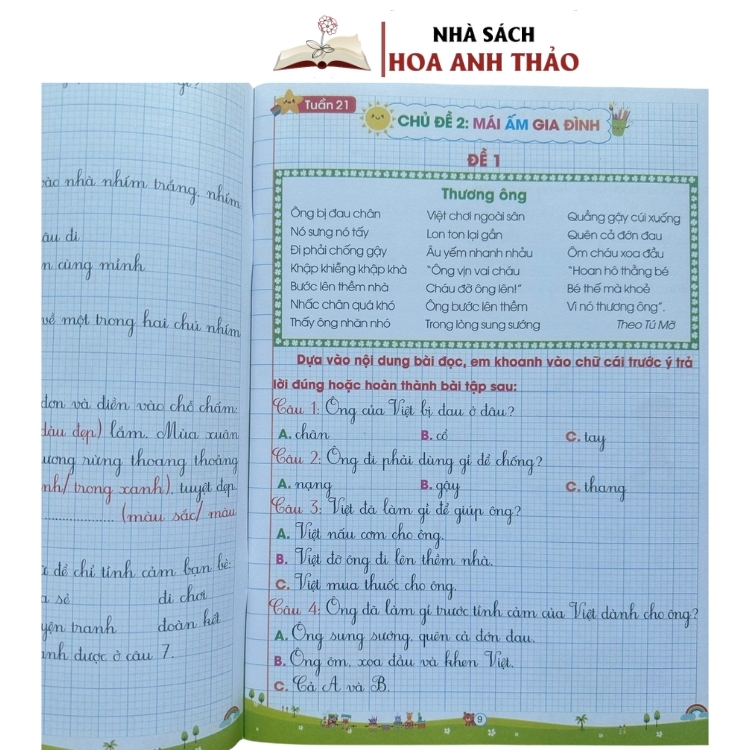 NHÀ SÁCH
HOA ANH THẢO
vào nhà nhím trắng, nhím
âu đi
n cùng mình
về một trong hai chú nhím
đơn và điền vào chỗ chấm:
đàu đẹp) lắm. Mùa xuân
ương rừng thoang thoảng
nh/ trong xanh), tuyệt đẹp.
(màu sắc/ màu
ừ để chỉ tình cảm bạn bè:
a sẻ đi chơi
yện tranh đoàn kết
ình được ở câu 7.
Tuần 21
CHỦ ĐỀ 2: MÁI ẤM GIA ĐÌNH
ĐỀ 1
Thương ông
Ông bị đau chân
Nó sưng nó tấy
Đi phải chống gậy
Khập khiễng khập khà
Bước lên thềm nhà
Nhấc chân quá khó
Thấy ông nhăn nhó
Việt chơi ngoài sân
Lon ton lại gần
Âu yếm nhanh nhảu
"Ông vịn vai cháu
Cháu đỡ ông lên!"
Ông bước lên thềm
Trong lòng sung sướng
Quẳng gậy cúi xuống
Quên cả đớn đau
Ôm cháu xoa đầu
"Hoan hô thằng bé
Bé thế mà khoẻ
Vì nó thương ông".
Theo Tú Mỡ
Dựa vào nội dung bài đọc, em khoanh vào chữ cái trước ý trả
lời đúng hoặc hoàn thành bài tập sau:
Câu 1: Ông của Việt bị đau ở đâu?
A. chân B. cổ C. tay
Câu 2: Ông đi phải dùng gì để chống?
A. nạng B. gậy C. thang
Câu 3: Việt đã làm gì để giúp ông?
A. Việt nấu cơm cho ông.
B. Việt đỡ ông đi lên thềm nhà.
C. Việt mua thuốc cho ông.
Câu 4: Ông đã làm gì trước tình cảm của Việt dành cho ông?
A. Ông sung sướng, quên cả đớn đau.
B. Ông ôm, xoa đầu và khen Việt.
C. Cả A và B.
9